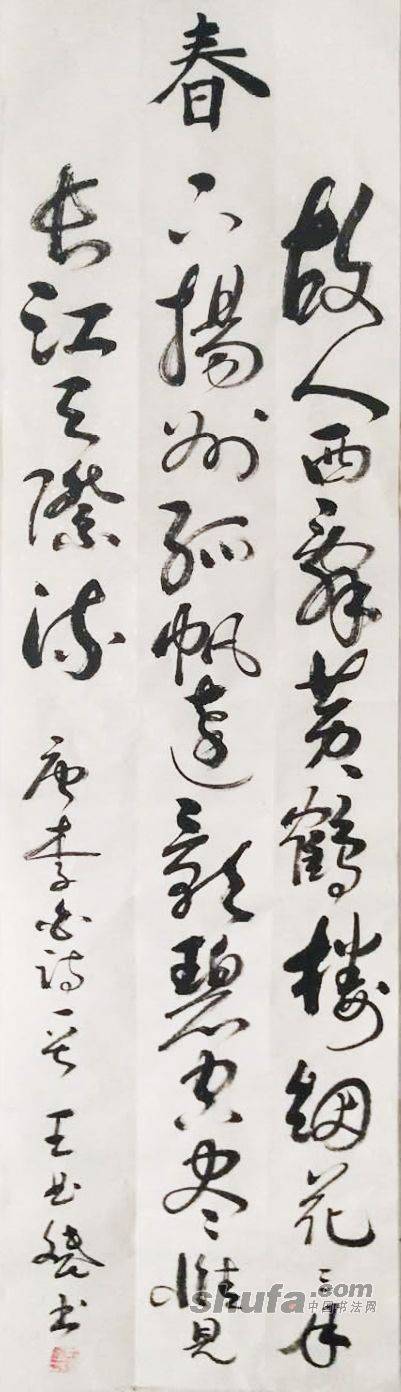 故人西辭黄鶴樓烟花三
春下揚州孤帆遠影碧空盡惟見
長江天際流
唐李白詩一首 王 書
shufa.com
中国书法网